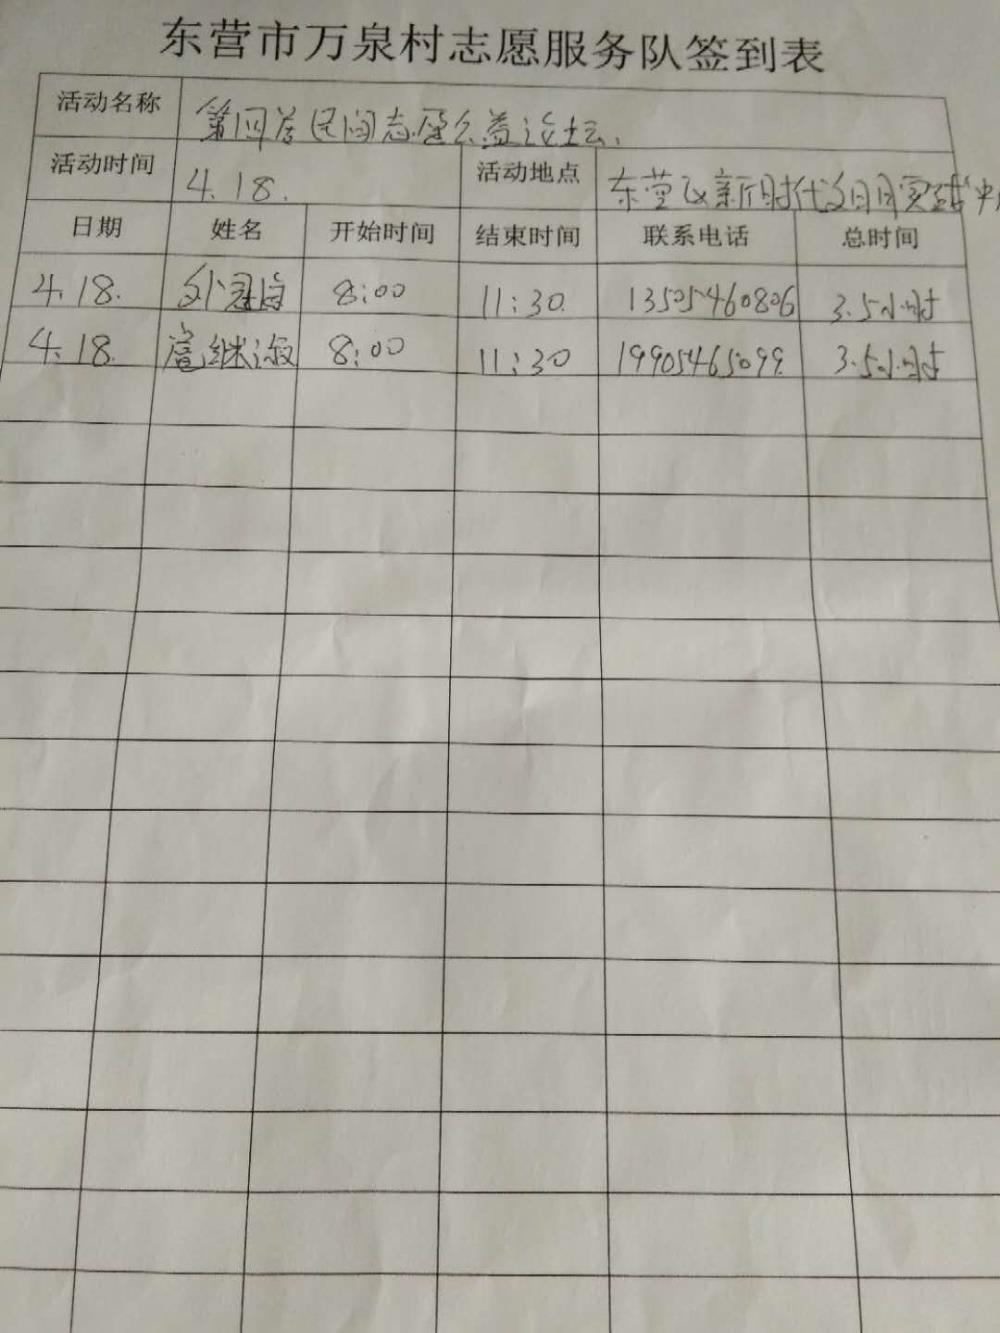 东营市万泉村志愿服务队签到表
活动名称 第四届民间志愿公益论坛.
活动时间 4.18. 活动地点 东营区新时代文明实践中心
日期 姓名 开始时间 结束时间 联系电话 总时间
4.18. 8:00 11:30 13505460806 3.5小时
4.18. 8:00 11:30 19905465099 3.5小时